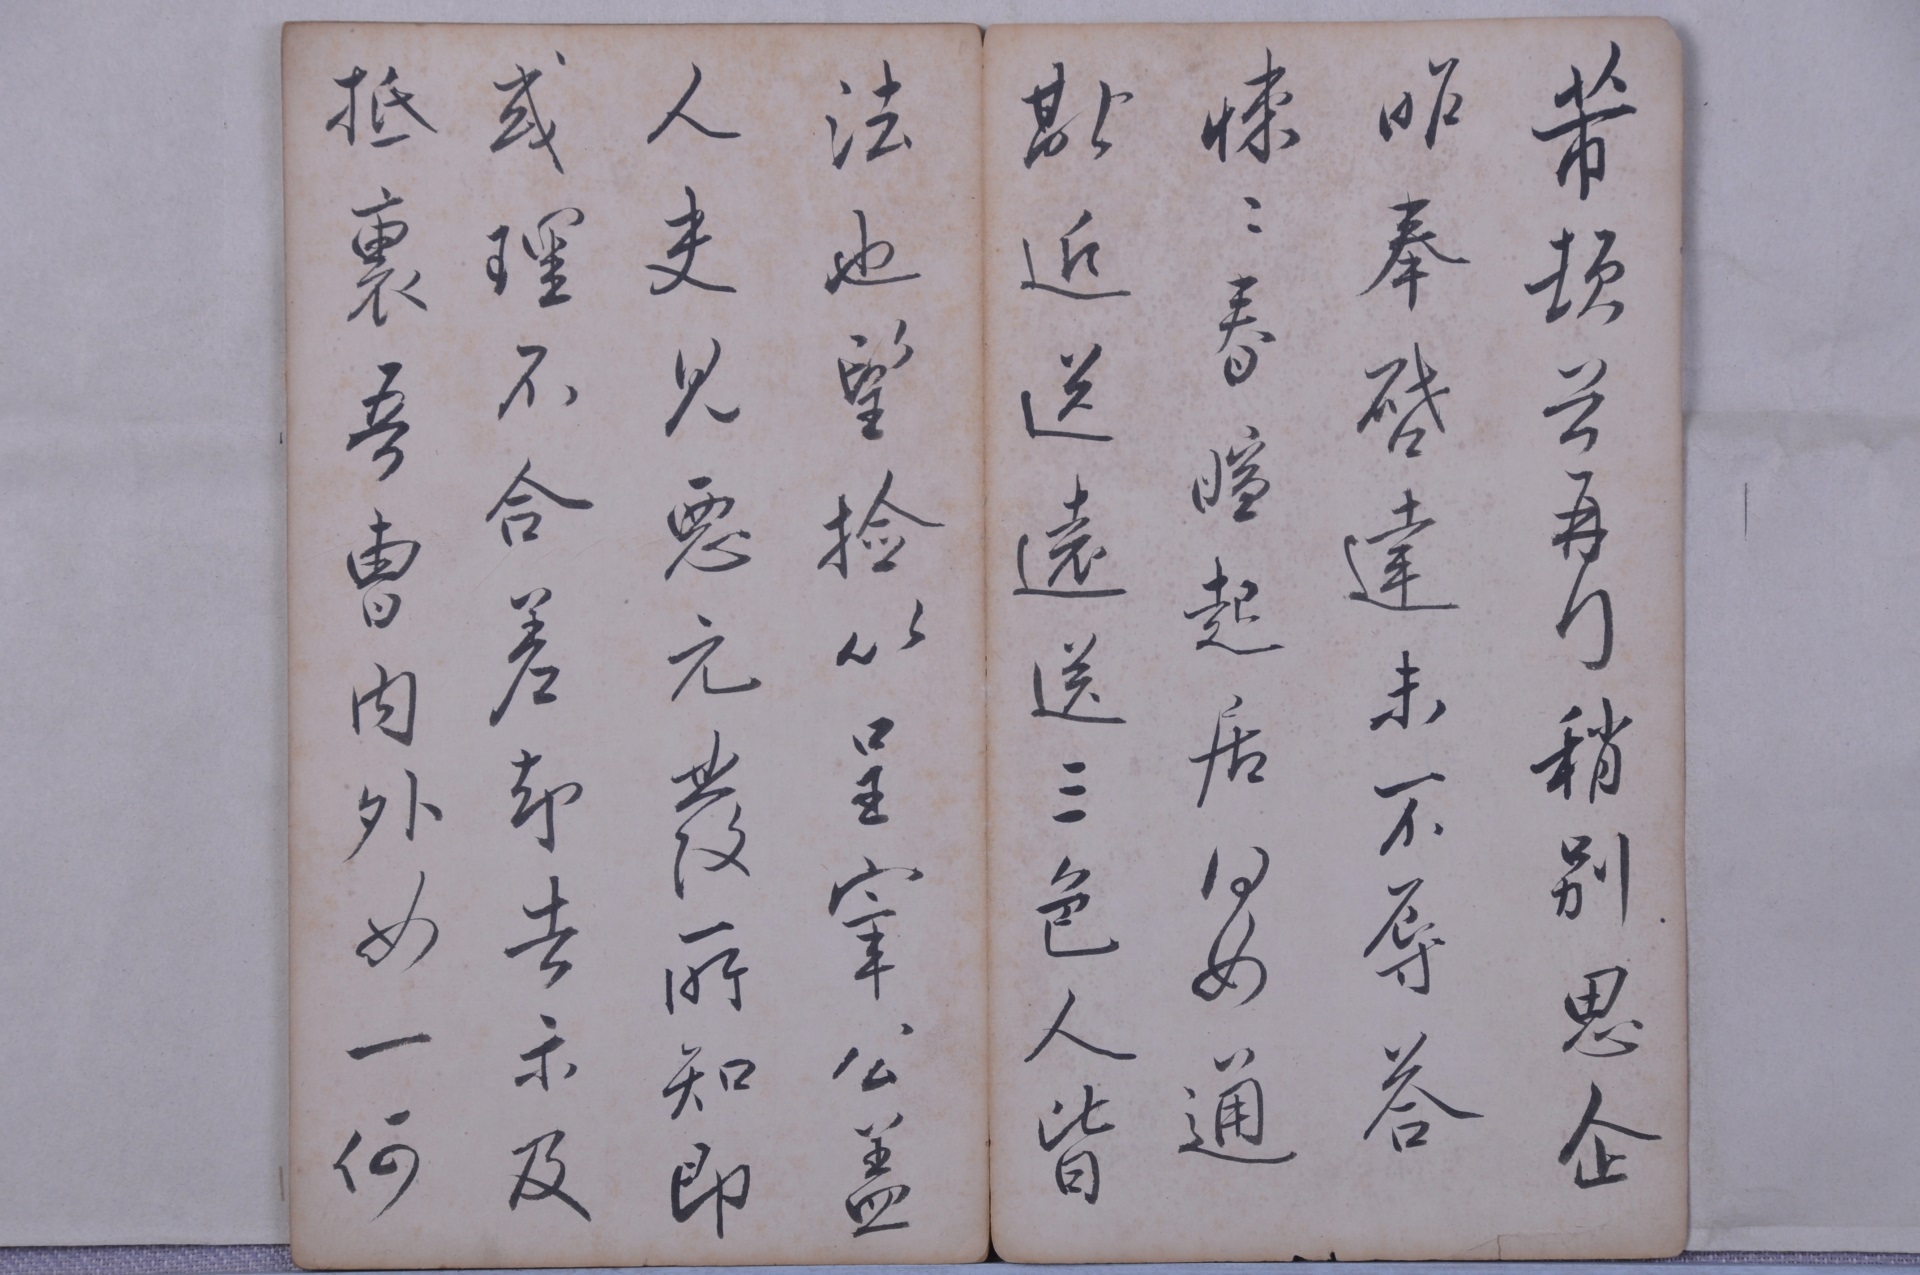 芾頓首再行稍別思企
昨奉啓達未不辱答
悚〻春暄起居何如通
欺近送遠送三色人皆
法也望撿以呈宰公蓋
人吏見惡元發所知即
或理不合差却去示及
抵裏吾曹内外如一何